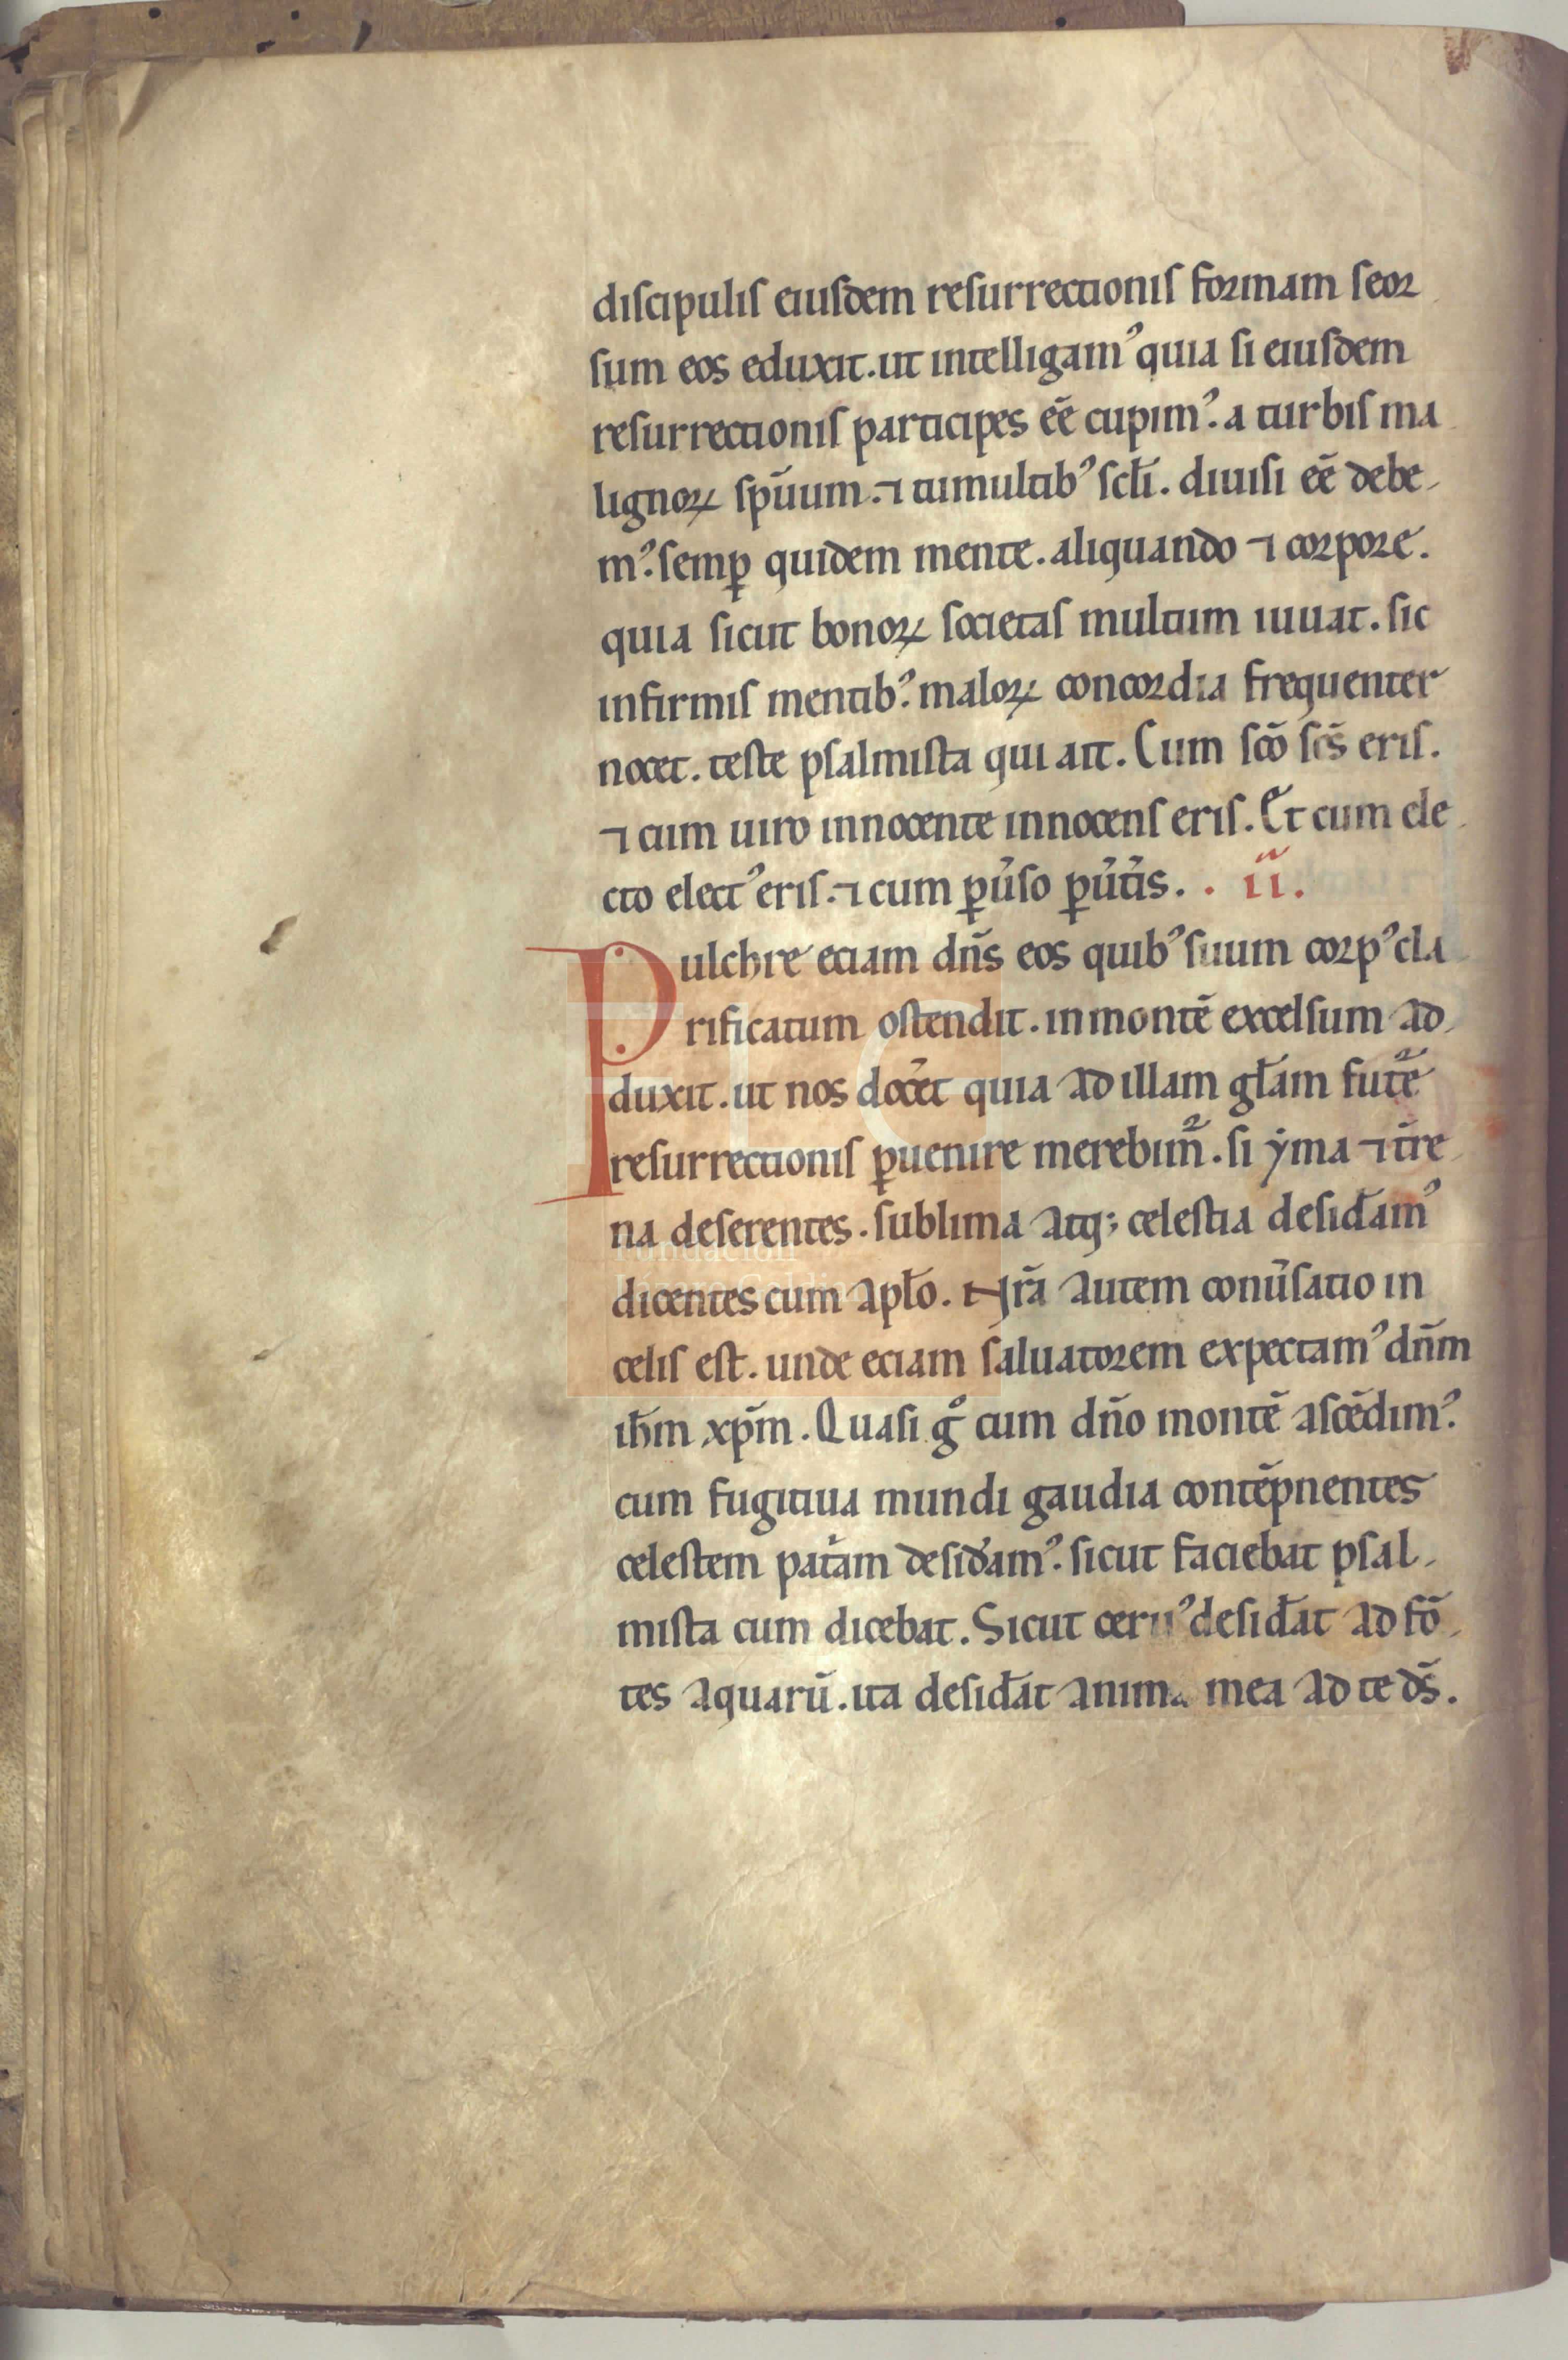 diſcipuliſ eiuſdem reſurrectioniſ formam ſeor
ſum eos eduxit. ut intelligamꝰ quia ſi eiuſdem
reſurrectioniſ participes eē cupimꝰ. a turbiſ ma
lignoꝝ ſpūum. ⁊ tumultibꝰ ſcłi. diuiſi eē debe
mꝰ. ſemꝑ quidem mente. aliquando ⁊ corpore.
quia ſicut bonoꝝ ſocietaſ multum iuuat. ſic
infirmiſ mentibꝰ. maloꝝ concordia frequenter
nocet. teſte pſalmiſta qui ait. Cum ſcō ſcs̄ eriſ.
⁊ cum uiro innocente innocenſ eriſ. Et cum ele
cto electꝰ eriſ. ⁊ cum ꝑu̓ſo ꝑu̓t̓is. . ii.
Pulchre eciam dn̄s eos quibꝰ ſuum corpꝰ cla
rificatum oſtendit. in montē excelſum ad
duxit. ut nos doc̓et quia ad illam gł̄am fut̓e
reſurrectioniſ ꝑuenire merebim̃. ſi ẏma ⁊ t̓re
na deſerentes. ſublima atq; celeſtia deſid̄amꝰ
dicentes cum apł̄o. Nr̄a autem conu̓ſatio in
celiſ eſt. unde eciam ſaluatorem expectamꝰ dn̄m
ih̄m xp̄m. Quaſi gͦ cum dn̄o montē aſcēdimꝰ.
cum fugitiua mundi gaudia contēpnentes
celeſtem pat̓am deſid̓amꝰ. ſicut faciebat pſal
miſta cum dicebat. Sicut ceruꝰ deſid̄at ad fō
tes aquarū. ita deſid̄at anima mea ad te ds̄.